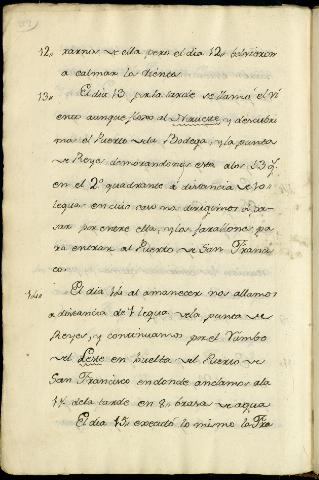 12,, rarnos de ella pero el dia 12,, bolvieron
a calmar los vientos
13,, El dia 13 por la tarde se llamó el vi
ento aunque floxo al Norueste y descubri
mos el Puerto de la Bodega, y la punta
de Reyes demorandonos esta a los 33 g.s
en el 2º quadrante á distancia de
leguas en cuio caso nos dirigimos á pa-
sar por entre ella, y los farallones pa
ra entrar al Puerto de San Francis
co.
14,, El dia 14 al amanecer nos allamos
a distancia de 1 legua de la punta de
Reyes, y continuamos por el Rumbo
del Leste en buelta del Puerto de
San Francisco en donde anclamos a la
1ª de la tarde en 8,, brasas de agua
El dia 15,, executó lo mismo la Fra